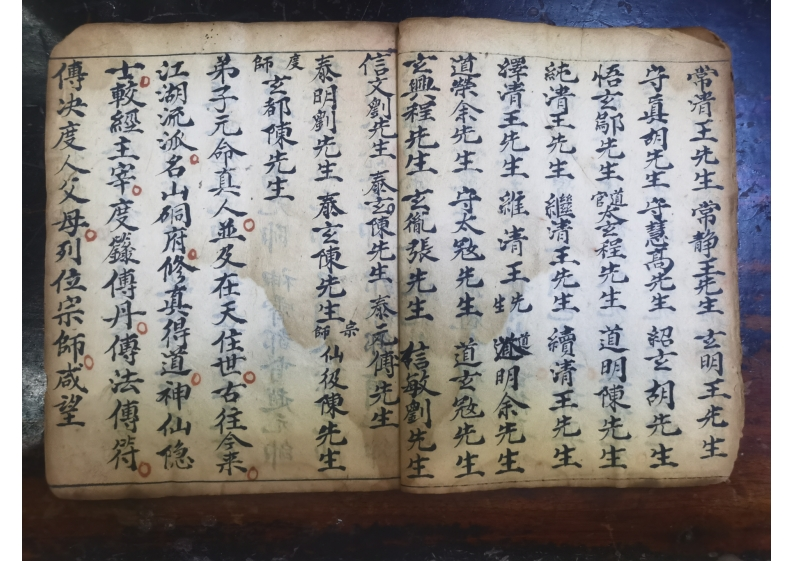 常清王先生 常静王先生 玄明王先生
守真胡先生 守慧髙先生 紹玄胡先生
悟玄鄔先生 道官太玄程先生 道明陳先生
純清王先生 繼清王先生 續清王先生
繹清王先生 維清王先生 道明余先生
道榮余先生 守太 先生 道玄 先生
玄興程先生 玄胤張先生 信敏劉先生
信文劉先生 泰玄陳先生 泰元傅先生
泰明劉先生 泰玄陳先生 宗師仙役陳先生
度師玄都陳先生
弟子元命真人並及在天住世古往今来
江湖流派名山硐府修真得道神仙隐
士較經主宰度籙傳丹傳法傳符
傳决度人父母列位宗師咸望